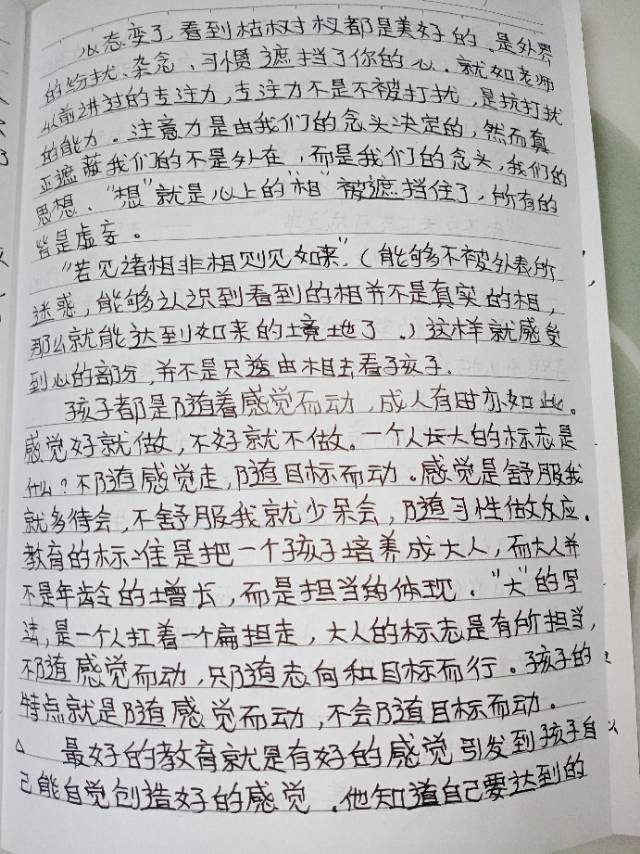 心态变了,看到枯树杈都是美好的,是外界
的纷扰、杂念、习惯遮挡了你的心.就如老师
以前讲过的专注力,专注力不是不被打扰,是抗打扰
的能力.注意力是由我们的念头决定的,然而真
正遮蔽我们的不是外在,而是我们的念头,我们的
思想."想"就是心上的"相"被遮挡住了,所有的
皆是虚妄。
"若见诸相非相则见如来".(能够不被外表所
迷惑,能够认识到看到的相并不是真实的相,
那么就能达到如来的境地了.)这样就感受
到心的部分,并不是只由相去看孩子.
孩子都是随着感觉而动,成人有时亦如此。
感觉好就做,不好就不做。一个人长大的标志是
什么?不随感觉走,随目标而动。感觉是舒服我
就多待会,不舒服我就少呆会,随习性做反应.
教育的标准是把一个孩子培养成大人,而大人并
不是年龄的增长,而是担当的体现."大"的写
法,是一个人扛着一个扁担走,大人的标志是有所担当,
不随感觉而动,只随志向和目标而行。孩子的
特点就是随感觉而动,不会随目标而动。
△ 最好的教育就是有好的感觉引发到孩子自
己能自觉创造好的感觉.他知道自己要达到的